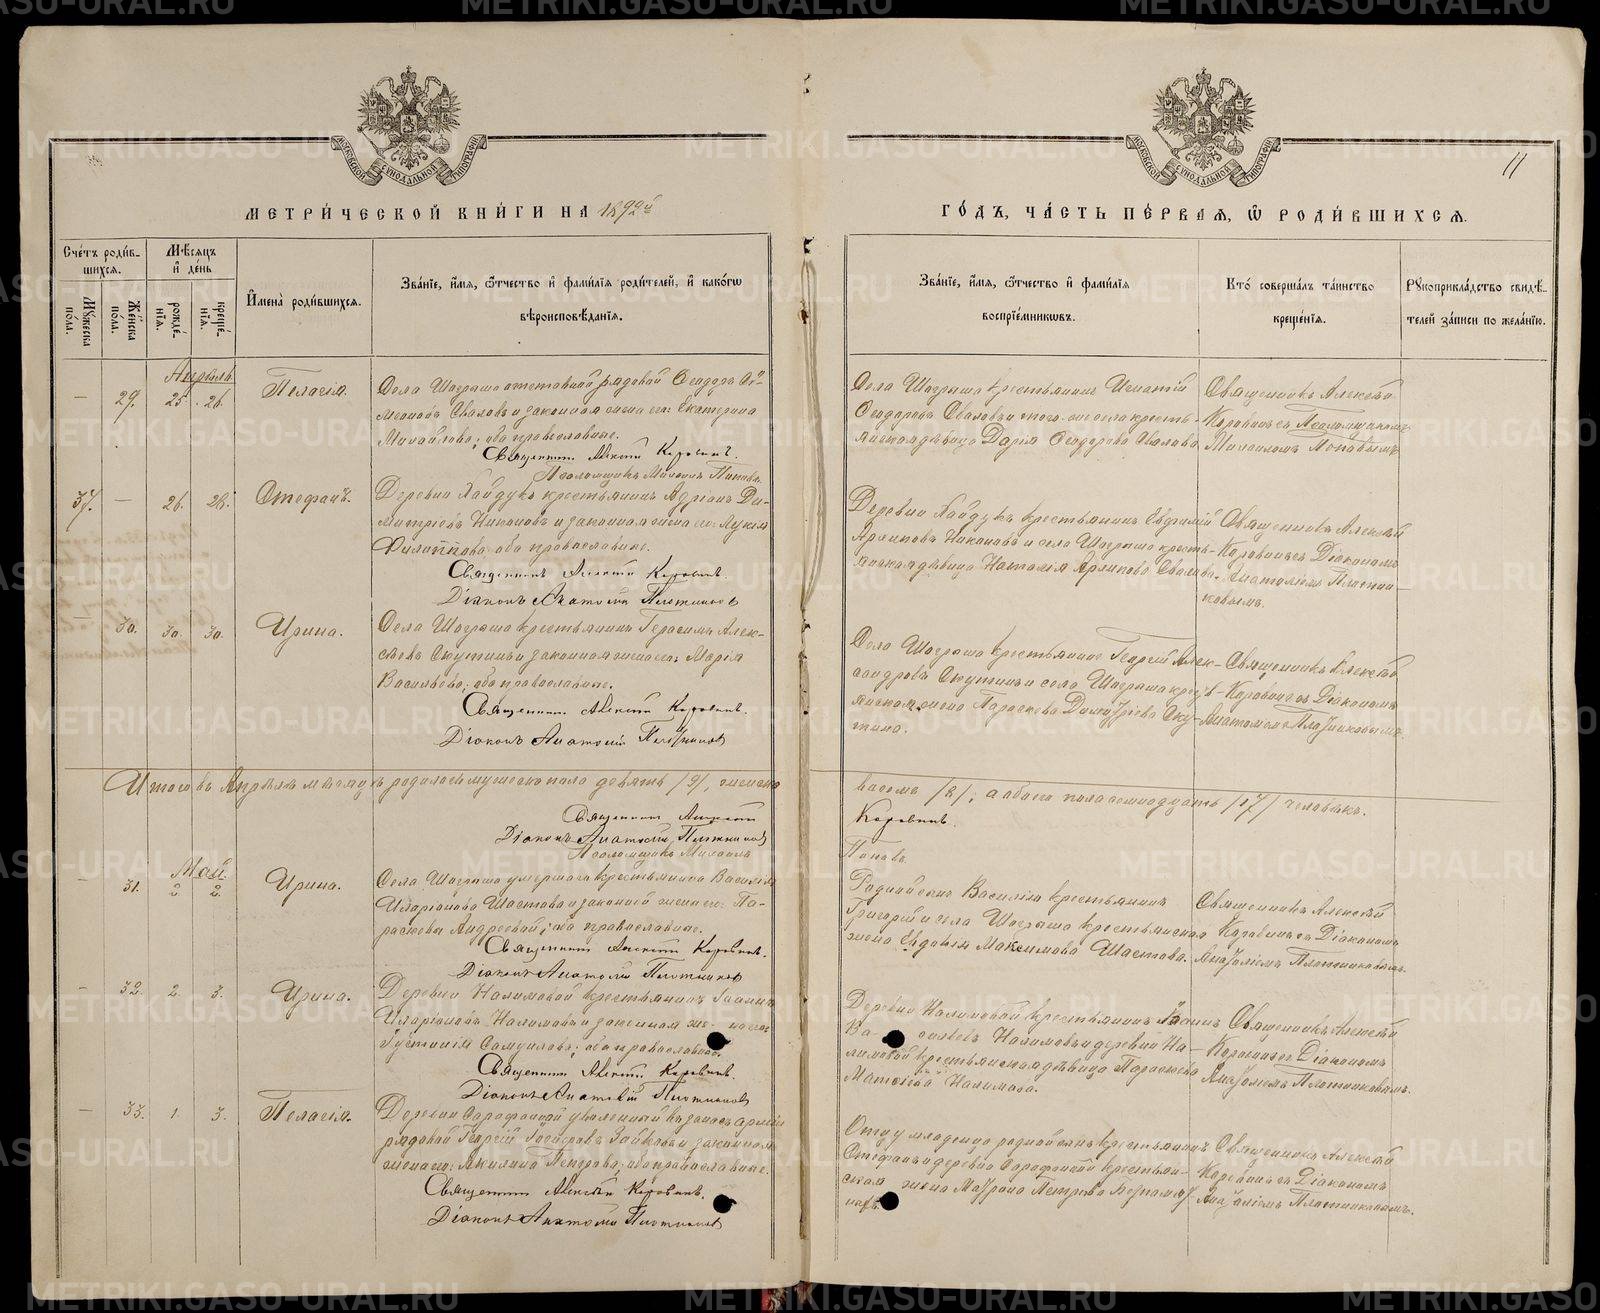 METRIKI.GASO-URAL.RU
МОСКОВСКОЙ СѴНОДАЛЬНОЙ ТИПОГРАФІИ
МЕТРИ́ЧЕСКОЙ КНИ́ГИ НА 1892й
ГО́ДЪ, ЧА́СТЬ ПЕ́РВАЯ, Ѿ РОДИ́ВШИХСЯ.
11
Сче́тъ роди́в-
шихся.
Мꙋ́жеска по́ла.
Же́нска по́ла.
Мѣ́сяцъ и҆ де́нь
рожде́-нїѧ.
креще́-нїѧ.
И҆мена̀ роди́вшихся.
Зва́нїе, и҆́мѧ, ѻ҆́тчество и҆ фами́лїѧ роди́телей, и҆ како́гѡ
вѣроисповѣ́данїѧ.
Зва́нїе, и҆́мѧ, ѻ҆́тчество и҆ фами́лїѧ
воспрїе́мникѡвъ.
Кто̀ соверша́лъ та́инство
креще́нїѧ.
Рꙋкоприкла́дство свидѣ́-
телей за́писи по жела́нїю.
Апрѣль
— 29. 25. 26. Пелагія.
Села Шаграша отставной рядовой Ѳеодоръ Си-
меоновъ Сваловъ и законная жена его: Екатерина
Михайлова; оба православные.
Священникъ Алексій Коровинъ.
Псаломщикъ Михаилъ Поповъ.
Села Шаграша крестьянинъ Игнатій
Ѳеодоровъ Сваловъ и того-же села кресть-
янская дѣвица Дарія Ѳеодорова Свалова
Священникъ Алексѣй
Коровинъ съ Псаломщикомъ
Михаиломъ Поповымъ
37. — 26. 28. Стефанъ.
Деревни Кайдукъ крестьянинъ Адріанъ Ди-
митріевъ Никоновъ и законная жена его: Лукія
Филиппова; оба православные.
Священникъ Алексій Коровинъ.
Діаконъ Анатолій Плотниковъ
Деревни Кайдукъ крестьянинъ Евфимій
Никоновъ и села Шаграша кресть-
янская дѣвица Наталія Свалова.
Священникъ Алексѣй
Коровинъ съ Діакономъ
Анатоліемъ Плотни-
ковымъ.
— 30. 30. 30. Ирина.
Села Шаграша крестьянинъ Герасимъ Алек-
сѣевъ Скутинъ и законная жена его: Марія
Васильева; оба православные.
Священникъ Алексій Коровинъ.
Діаконъ Анатолій Плотниковъ
Села Шаграша крестьянинъ Георгій Алек-
сандровъ Скутинъ и села Шаграша кресть-
янская жена Параскева Димитріева Ску-
тина.
Священникъ Алексѣй
Коровинъ съ Діакономъ
Анатоліемъ Плотниковымъ.
Итого въ Апрѣлѣ мѣсяцѣ родилось мужеска пола девять /9/, женска
восемь /8/; а обоего пола семнадцать /17/ человѣкъ.
Священникъ Алексій
Коровинъ.
Діаконъ Анатолій Плотниковъ
Псаломщикъ Михаилъ
Поповъ
Май.
— 31. 2 2. Ирина.
Села Шаграша умершаго крестьянина Василія
Иларіонова Шастова и законной жены его: Па-
раскевы Андреевой; оба православные.
Священникъ Алексій Коровинъ.
Діаконъ Анатолій Плотниковъ
Родной сынъ Василія крестьянинъ
Григорій и села Шаграша крестьянская
жена Евдокія Максимова Шастова.
Священникъ Алексѣй
Коровинъ съ Діакономъ
Анатоліемъ Плотниковымъ.
— 32. 2. 3. Ирина.
Деревни Налимовой крестьянинъ Іоаннъ
Иларіоновъ Налимовъ и законная же- на его:
Іустинія Самуилова; оба православные.
Священникъ Алексій Коровинъ.
Діаконъ Анатолій Плотниковъ
Деревни Налимовой крестьянинъ Іоаннъ
Ва- сильевъ Налимовъ и деревни На-
лимовой крестьянская дѣвица Параскева
Матѳіева Налимова.
Священникъ Алексѣй
Коровинъ съ Діакономъ
Анатоліемъ Плотниковымъ.
— 33. 1. 3. Пелагія.
Деревни Сарафановой уволенный въ запасъ арміи
рядовой Георгій Зайковъ и законная
жена его: Акилина Петрова; оба православные.
Священникъ Алексѣй Коровинъ.
Діаконъ Анатолій Плотниковъ
Отцу младенца родной сынъ крестьянинъ
Стефанъ и деревни Сарафановой крестьян-
ская жена Матрона Петрова
Священникъ Алексѣй
Коровинъ съ Діакономъ
Анатоліемъ Плотниковымъ.